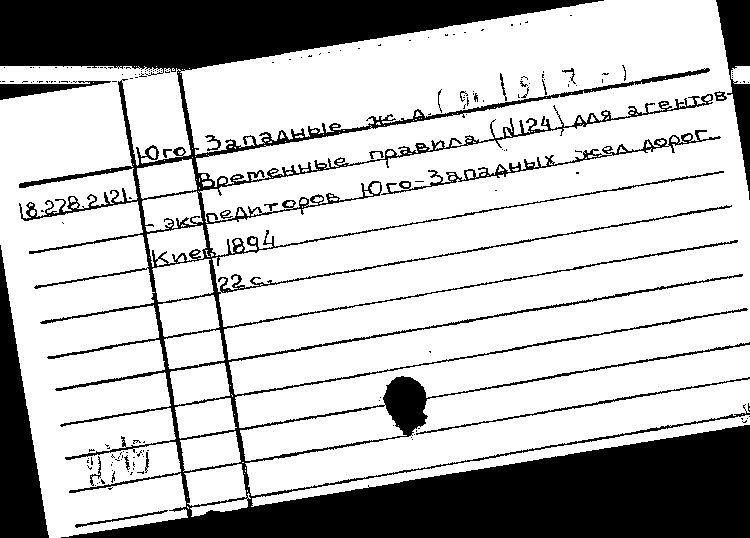 Юго-Западные ж.д. (до 1917 г.)
18.278.2.121. Временные правила (№124) для агентов-
- экспедиторов Юго-Западных жел. дорог
Киев, 1894
22 с.